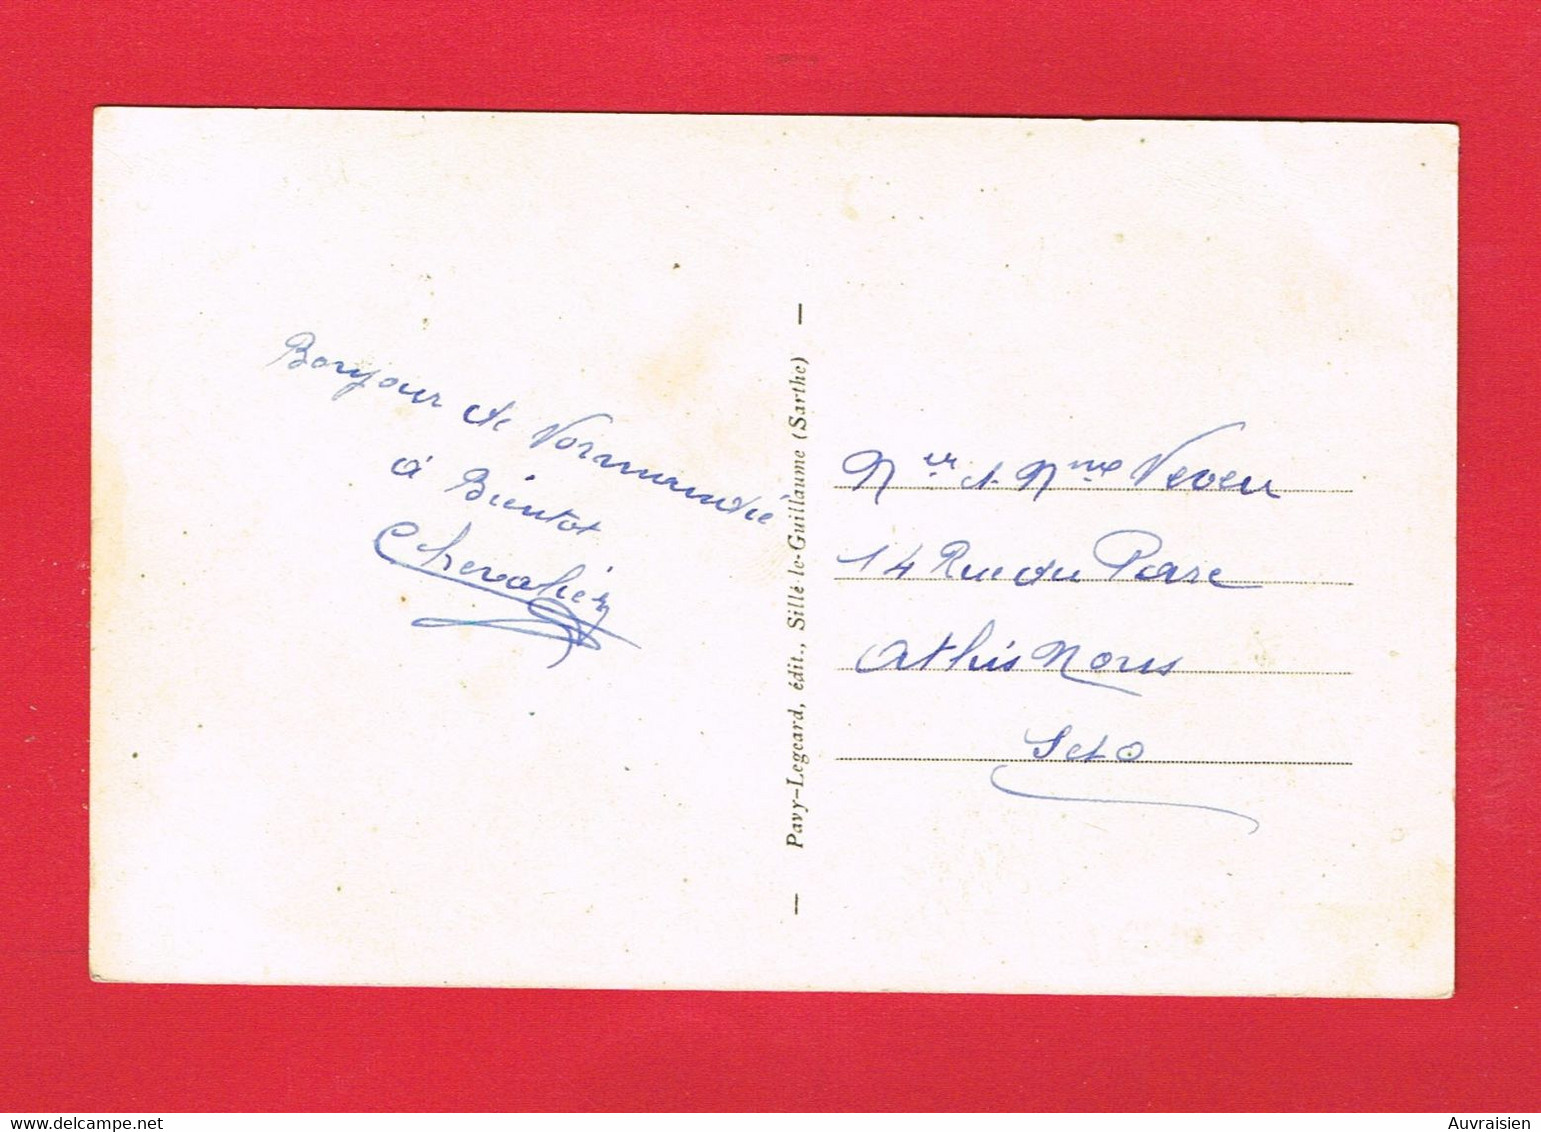 Bonjour de Normandie
à Bientot
Chevalier
Pavy-Legeard, édit., Sillé-le-Guillaume (Sarthe)
Mer et Mme Neveu
14 Rue du Parc
Athis Mons
S et O
Auvraisien